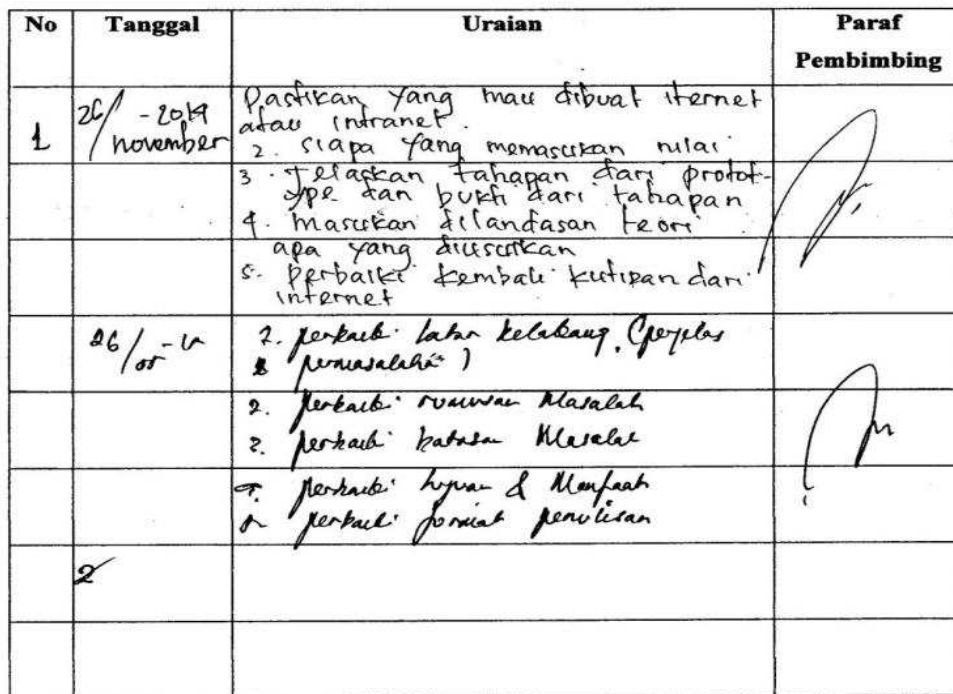 No Tanggal Uraian Paraf Pembimbing
1 26/ - 2014 november
Pastikan yang mau dibuat iternet
atau intranet.
2. siapa yang memasukan nilai
3. Jelaskan tahapan dari protot-
ype dan bukti dari tahapan
4. masukan dilandasan teori
apa yang diusulkan
5. perbaiki kembali kutipan dari
internet
26/05 -
perbaiki latar belakang (perjelas
permasalaha )
2. perbaiki rumusan Masalah
3. perbaiki batasan Masalah
perbaiki tujuan & Manfaat
perbaiki format penulisan
2